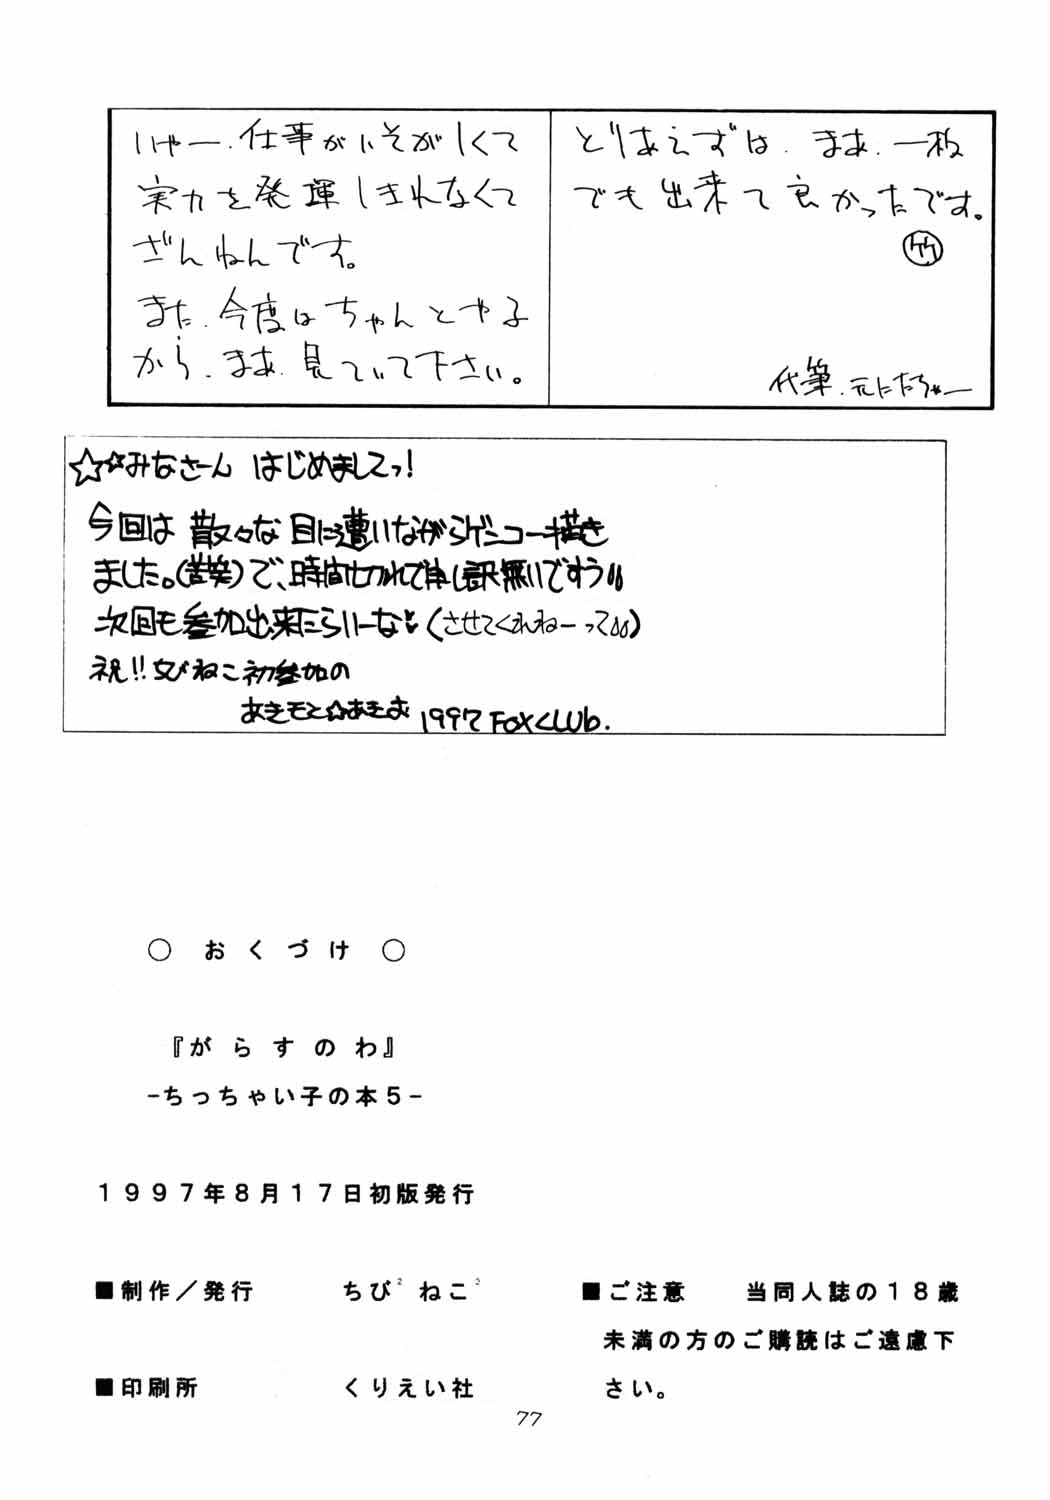 いやー、仕事がいそがしくて
実力を発揮しきれなくて
ざんねんです。
また、今度はちゃんとやる
から、まあ、見ていて下さい。
とりあえずは、まあ、一枚
でも出来て良かったです。
代筆、元にたちゃー
☆☆みなさーん はじめましてっ!
今回は 散々な 目に遭いながらゲンコー描き
ました。(苦笑)で、時間切れで申し訳無いですぅ
次回も参加出来たらいーな♥(させてくれねーって)
祝!!ちびねこ初参加の
あきもと☆あきお 1997 FOXCLUb.
○ おくづけ ○
『がらすのわ』
-ちっちゃい子の本5-
1997年8月17日初版発行
■制作/発行 ちび²ねこ²
■印刷所 くりえい社
■ご注意 当同人誌の18歳
未満の方のご購読はご遠慮下
さい。
77